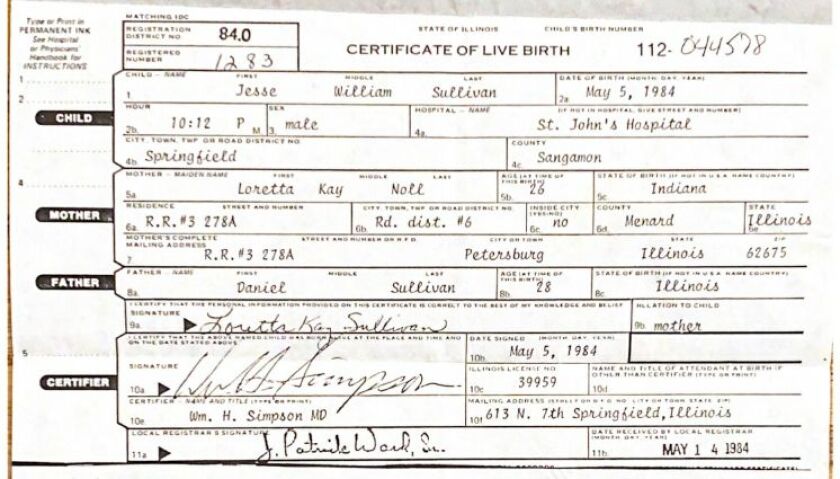 MATCHING IDC
Type or Print in
PERMANENT INK
See Hospital
or Physicians'
Handbook for
INSTRUCTIONS
REGISTRATION
DISTRICT NO 84.0
REGISTERED
NUMBER 1283
STATE OF ILLINOIS
CERTIFICATE OF LIVE BIRTH
CHILD'S BIRTH NUMBER
112-044578
1
CHILD – NAME FIRST MIDDLE LAST
1. Jesse William Sullivan
DATE OF BIRTH (MONTH DAY, YEAR)
2a May 5, 1984
2
CHILD
HOUR
2b. 10:12 P M
SEX
3. male
HOSPITAL – NAME (IF NOT IN HOSPITAL, GIVE STREET AND NUMBER)
4a. St. John's Hospital
CITY, TOWN, TWP OR ROAD DISTRICT NO
4b Springfield
COUNTY
4c. Sangamon
4
MOTHER
MOTHER – MAIDEN NAME FIRST MIDDLE LAST
5a Loretta Kay Noll
AGE (AT TIME OF THIS BIRTH)
5b. 26
STATE OF BIRTH (IF NOT IN U.S.A. NAME COUNTRY)
5c. Indiana
RESIDENCE STREET AND NUMBER
6a. R.R.#3 278A
CITY, TOWN, TWP OR ROAD DISTRICT NO.
6b. Rd. dist. #6
INSIDE CITY
(YES/NO)
6c. no
COUNTY
6d. Menard
STATE
6e Illinois
MOTHER'S COMPLETE
MAILING ADDRESS STREET AND NUMBER OR R F D. CITY OR TOWN STATE ZIP
7 R.R.#3 278A Petersburg Illinois 62675
FATHER
FATHER – NAME FIRST MIDDLE LAST
8a Daniel Sullivan
AGE (AT TIME OF THIS BIRTH)
8b. 28
STATE OF BIRTH (IF NOT IN U.S.A. NAME COUNTRY)
8c Illinois
I CERTIFY THAT THE PERSONAL INFORMATION PROVIDED ON THIS CERTIFICATE IS CORRECT TO THE BEST OF MY KNOWLEDGE AND BELIEF
SIGNATURE
9a Loretta Kay Sullivan
RELATION TO CHILD
9b. mother
5
CERTIFIER
I CERTIFY THAT THE ABOVE NAMED CHILD WAS BORN ALIVE AT THE PLACE AND TIME AND
ON THE DATE STATED ABOVE.
SIGNATURE
10a. Wm H. Simpson
DATE SIGNED (MONTH DAY, YEAR)
10b. May 5, 1984
ILLINOIS LICENSE NO
10c 39959
NAME AND TITLE OF ATTENDANT AT BIRTH IF
OTHER THAN CERTIFIER (TYPE OR PRINT)
10d
CERTIFIER – NAME AND TITLE (TYPE OR PRINT)
10e Wm. H. Simpson MD
MAILING ADDRESS
10f 613 N. 7th Springfield, Illinois
LOCAL REGISTRAR'S SIGNATURE
11a J. Patrick Ward, Sr.
DATE RECEIVED BY LOCAL REGISTRAR
(MONTH DAY, YEAR)
11b. MAY 14 1984